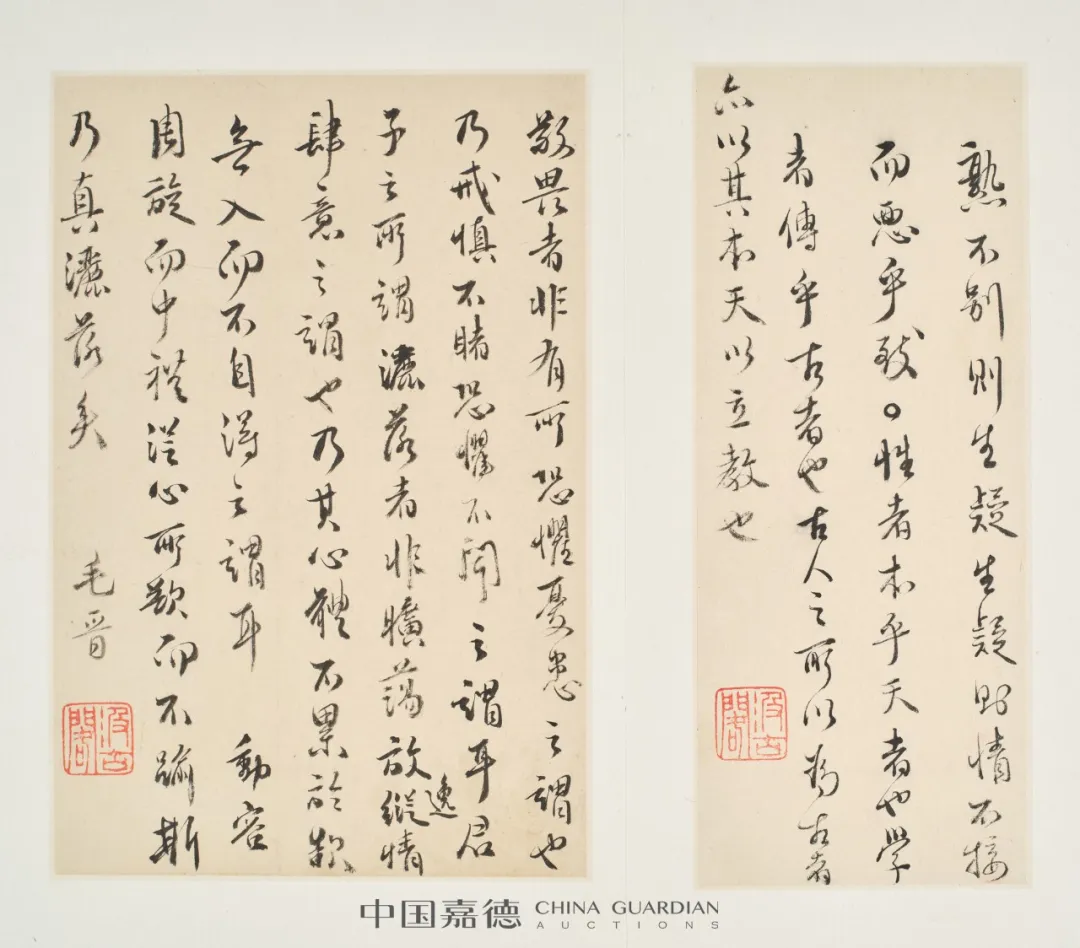 熟不别則生疑生疑則情不接
而惡乎致○性者本乎天者也學
者傳乎古者也古人之所以為古者
亦以其本天以立教也
汲古閣
敬畏者非有所恐懼憂患之謂也
乃戒慎不睹恐懼不聞之謂耳君
子之所謂灑落者非曠蕩放逸縱情
肆意之謂也乃其心體不累於欲
無入而不自得之謂耳 動容
周旋而中禮從心所欲而不踰斯
乃真灑落矣
毛晋
汲古閣
中国嘉德 CHINA GUARDIAN
AUCTIONS